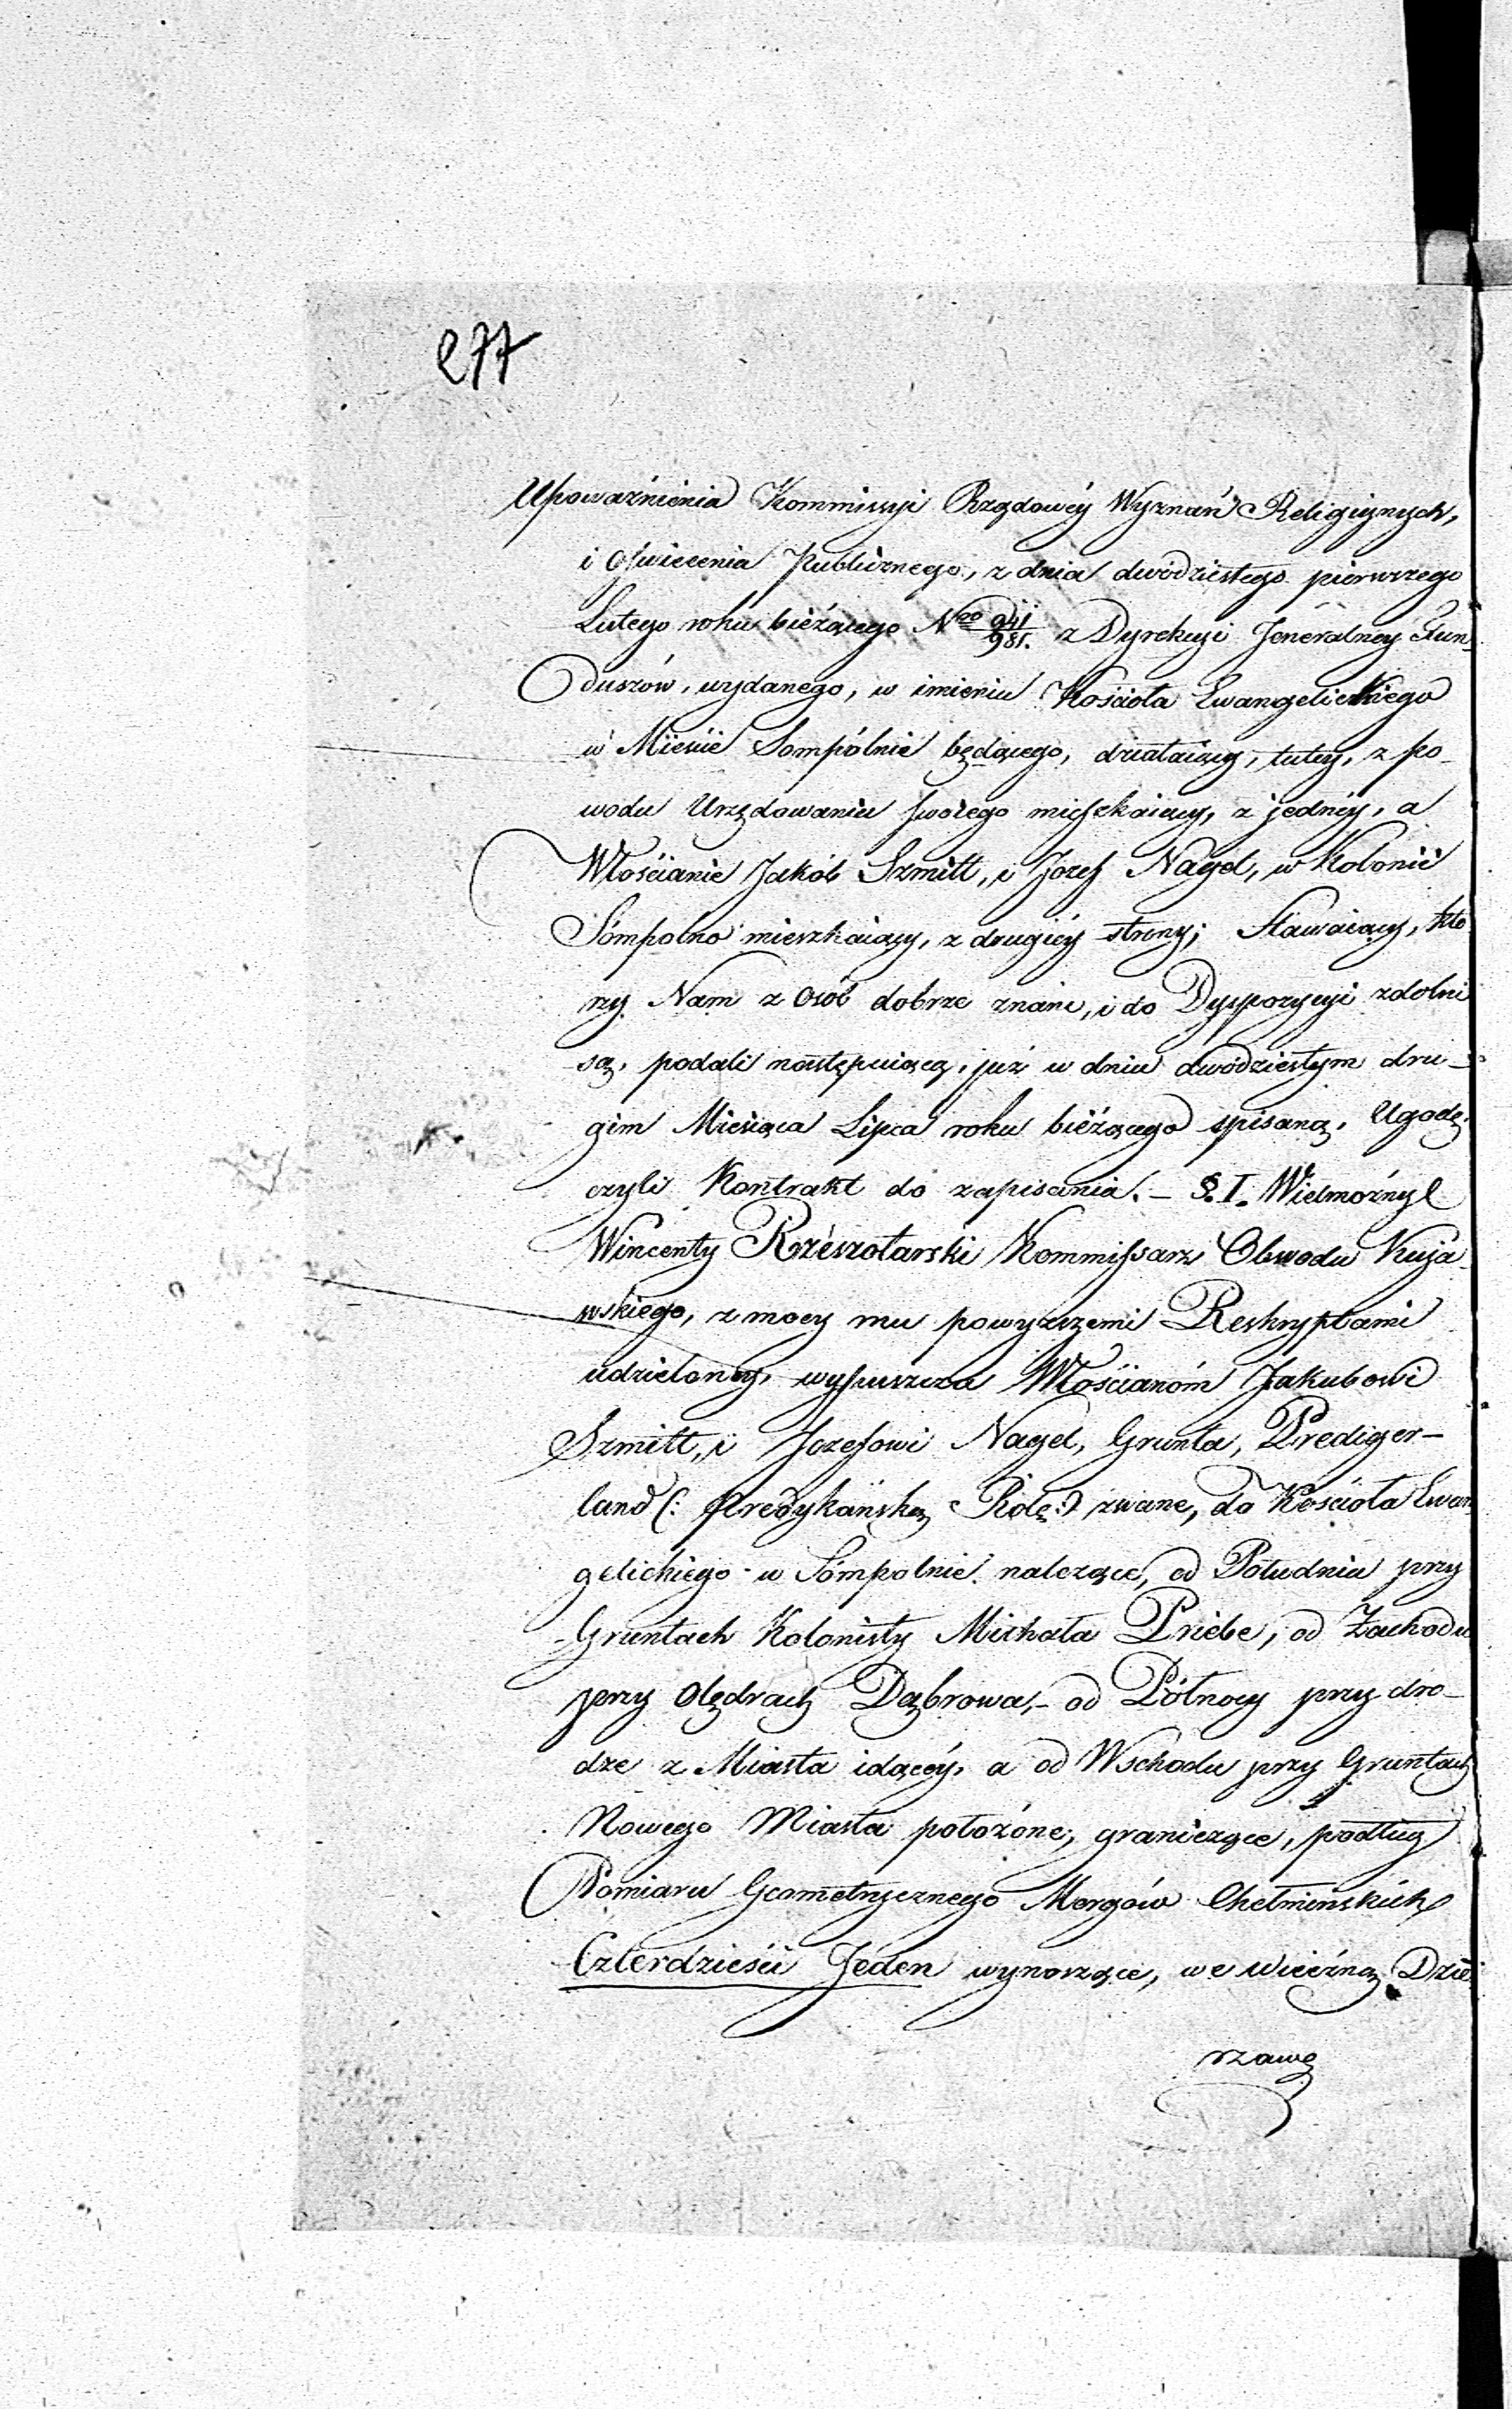 277
Upoważnienia Kommissyi Rządowéy Wyznań Religiynych,
i Oświecenia Publicznego, z dnia dwódziestego pierwszego
Lutego roku bieżącego Nro 941/981. z Dyrekcyi Jeneralney Fun-
duszów, wydanego, w imieniu Kościoła Ewangelickiego
w Mieście Sompólnie będącego, działaiący, tutey, z po-
wodu Urzędowania swoiego mieszkaiący, z jednéy, a
Włościanie Jakób Szmitt, i Jozef Nagel, w Kolonii
Sómpolno mieszkaiący, z drugiéy strony; Stawaiący, któ
rzy Nam z Osób dobrze znani, i do Dyspozycyi zdolni
są, podali następuiącą, już w dniu dwódziestym dru-
gim Miesiąca Lipca roku bieżącego spisaną, Ugodę,
czyli Kontrakt do zapisania. – §. I. Wielmożny
Wincenty Rzeszotarski Kommissarz Obwodu Kuja-
wskiego, z mocy mu powyższemi Reskryptami
udzieloney, wypuszcza Włościanóm Jakubowi
Szmitt, i Jozefowi Nagel, Grunta, Prediger-
land (: Predykańską Rolę :) zwane, do Kościoła Ewan
gelickiego w Sómpolnie należące, od Południa przy
Gruntach Kolonisty Michała Priebe, od Zachodu
przy Olędrach Dąbrowa, – od Północy przy dro-
dze z Miasta idącéy, a od Wschodu przy Gruntach
Nowego Miasta położóne, graniczące, podług
Pomiaru Geometrycznego Morgów Chełmińskich
Czterdzieści Jéden wynoszące, we wieczną Dzier
rzawę